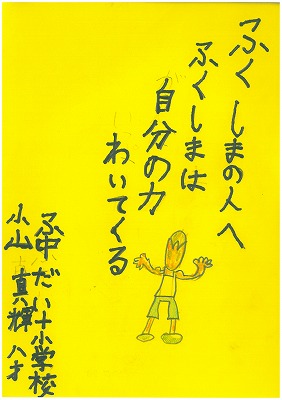 ふくしまの人へ
ふくしまは
自分の力
わいてくる
ふ中だい十小学校
小山真輝八才